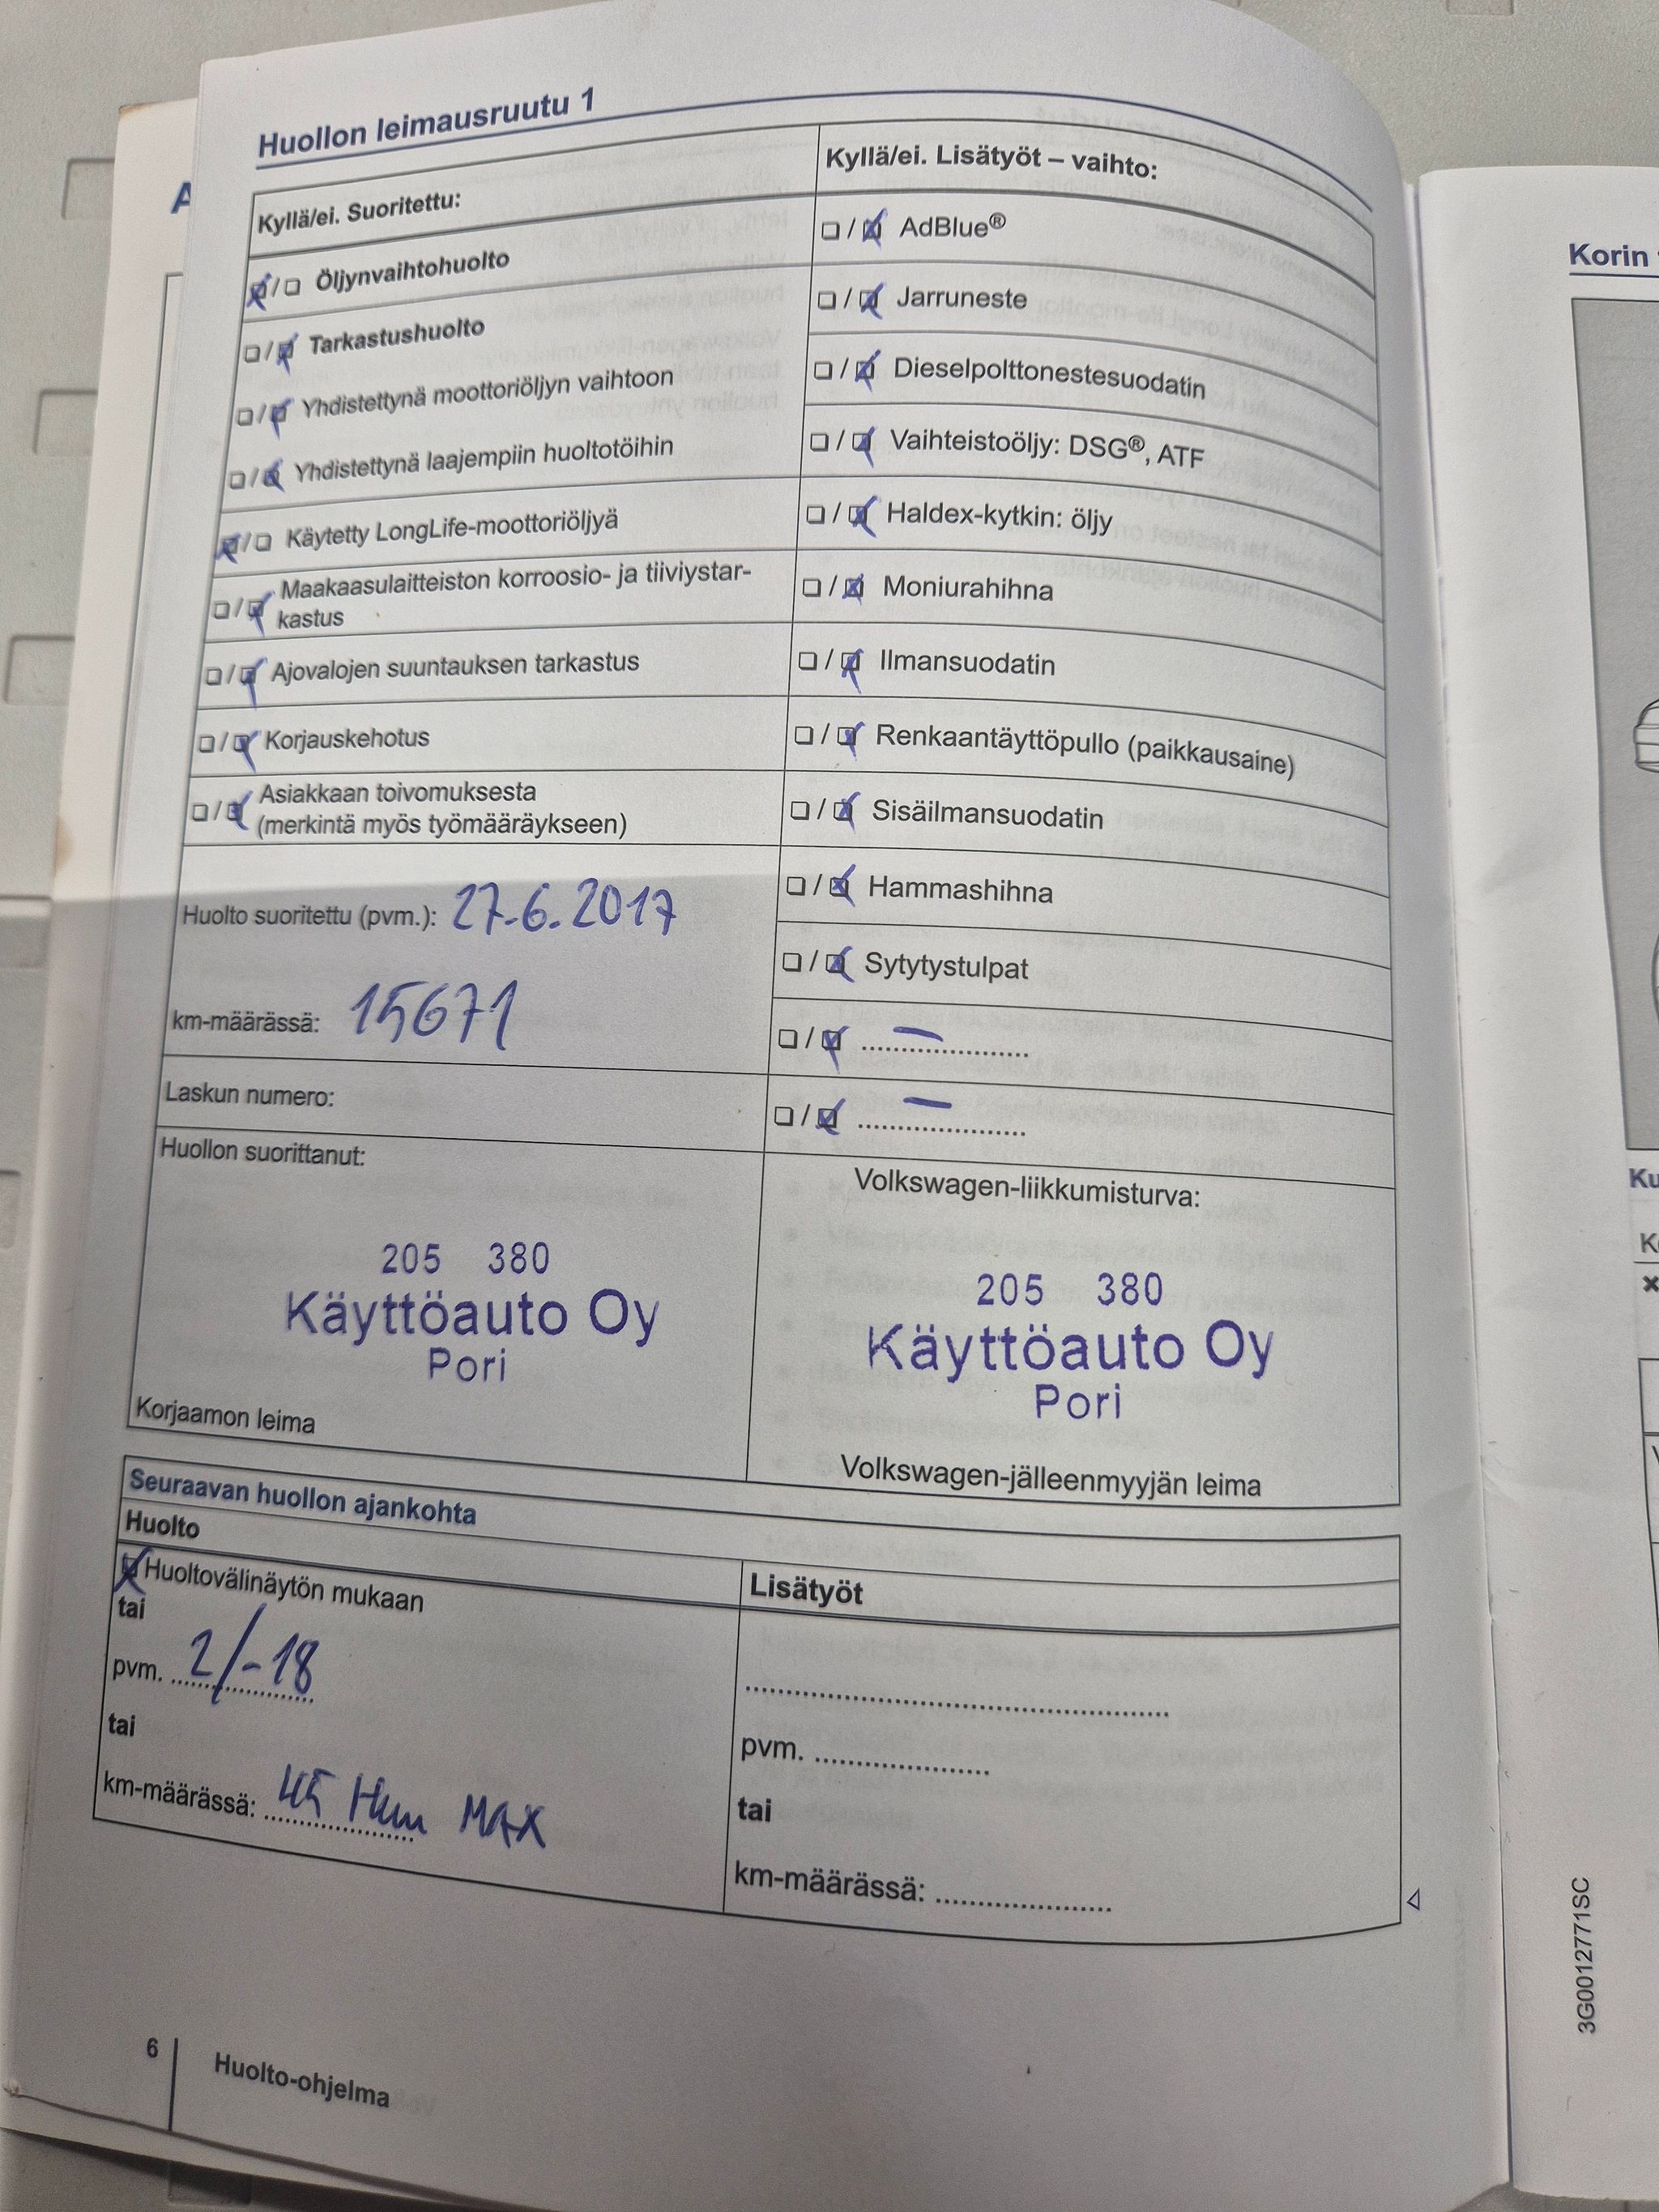 Huollon leimausruutu 1
Kyllä/ei. Suoritettu:
Öljynvaihtohuolto
Tarkastushuolto
Yhdistettynä moottoriöljyn vaihtoon
Yhdistettynä laajempiin huoltotöihin
Käytetty LongLife-moottoriöljyä
Maakaasulaitteiston korroosio- ja tiiviystar-
kastus
Ajovalojen suuntauksen tarkastus
Korjauskehotus
Asiakkaan toivomuksesta
(merkintä myös työmääräykseen)
Huolto suoritettu (pvm.): 27.6.2017
km-määrässä: 15671
Laskun numero:
Huollon suorittanut:
205 380
Käyttöauto Oy
Pori
Korjaamon leima
Kyllä/ei. Lisätyöt – vaihto:
AdBlue®
Jarruneste
Dieselpolttonestesuodatin
Vaihteistoöljy: DSG®, ATF
Haldex-kytkin: öljy
Moniurahihna
Ilmansuodatin
Renkaantäyttöpullo (paikkausaine)
Sisäilmansuodatin
Hammashihna
Sytytystulpat
Volkswagen-liikkumisturva:
205 380
Käyttöauto Oy
Pori
Volkswagen-jälleenmyyjän leima
Seuraavan huollon ajankohta
Huolto
Huoltovälinäytön mukaan
tai
pvm. 2/-18
tai
km-määrässä: 45 MAX
Lisätyöt
pvm.
tai
km-määrässä:
6
Huolto-ohjelma
Korin
3G0012771SC